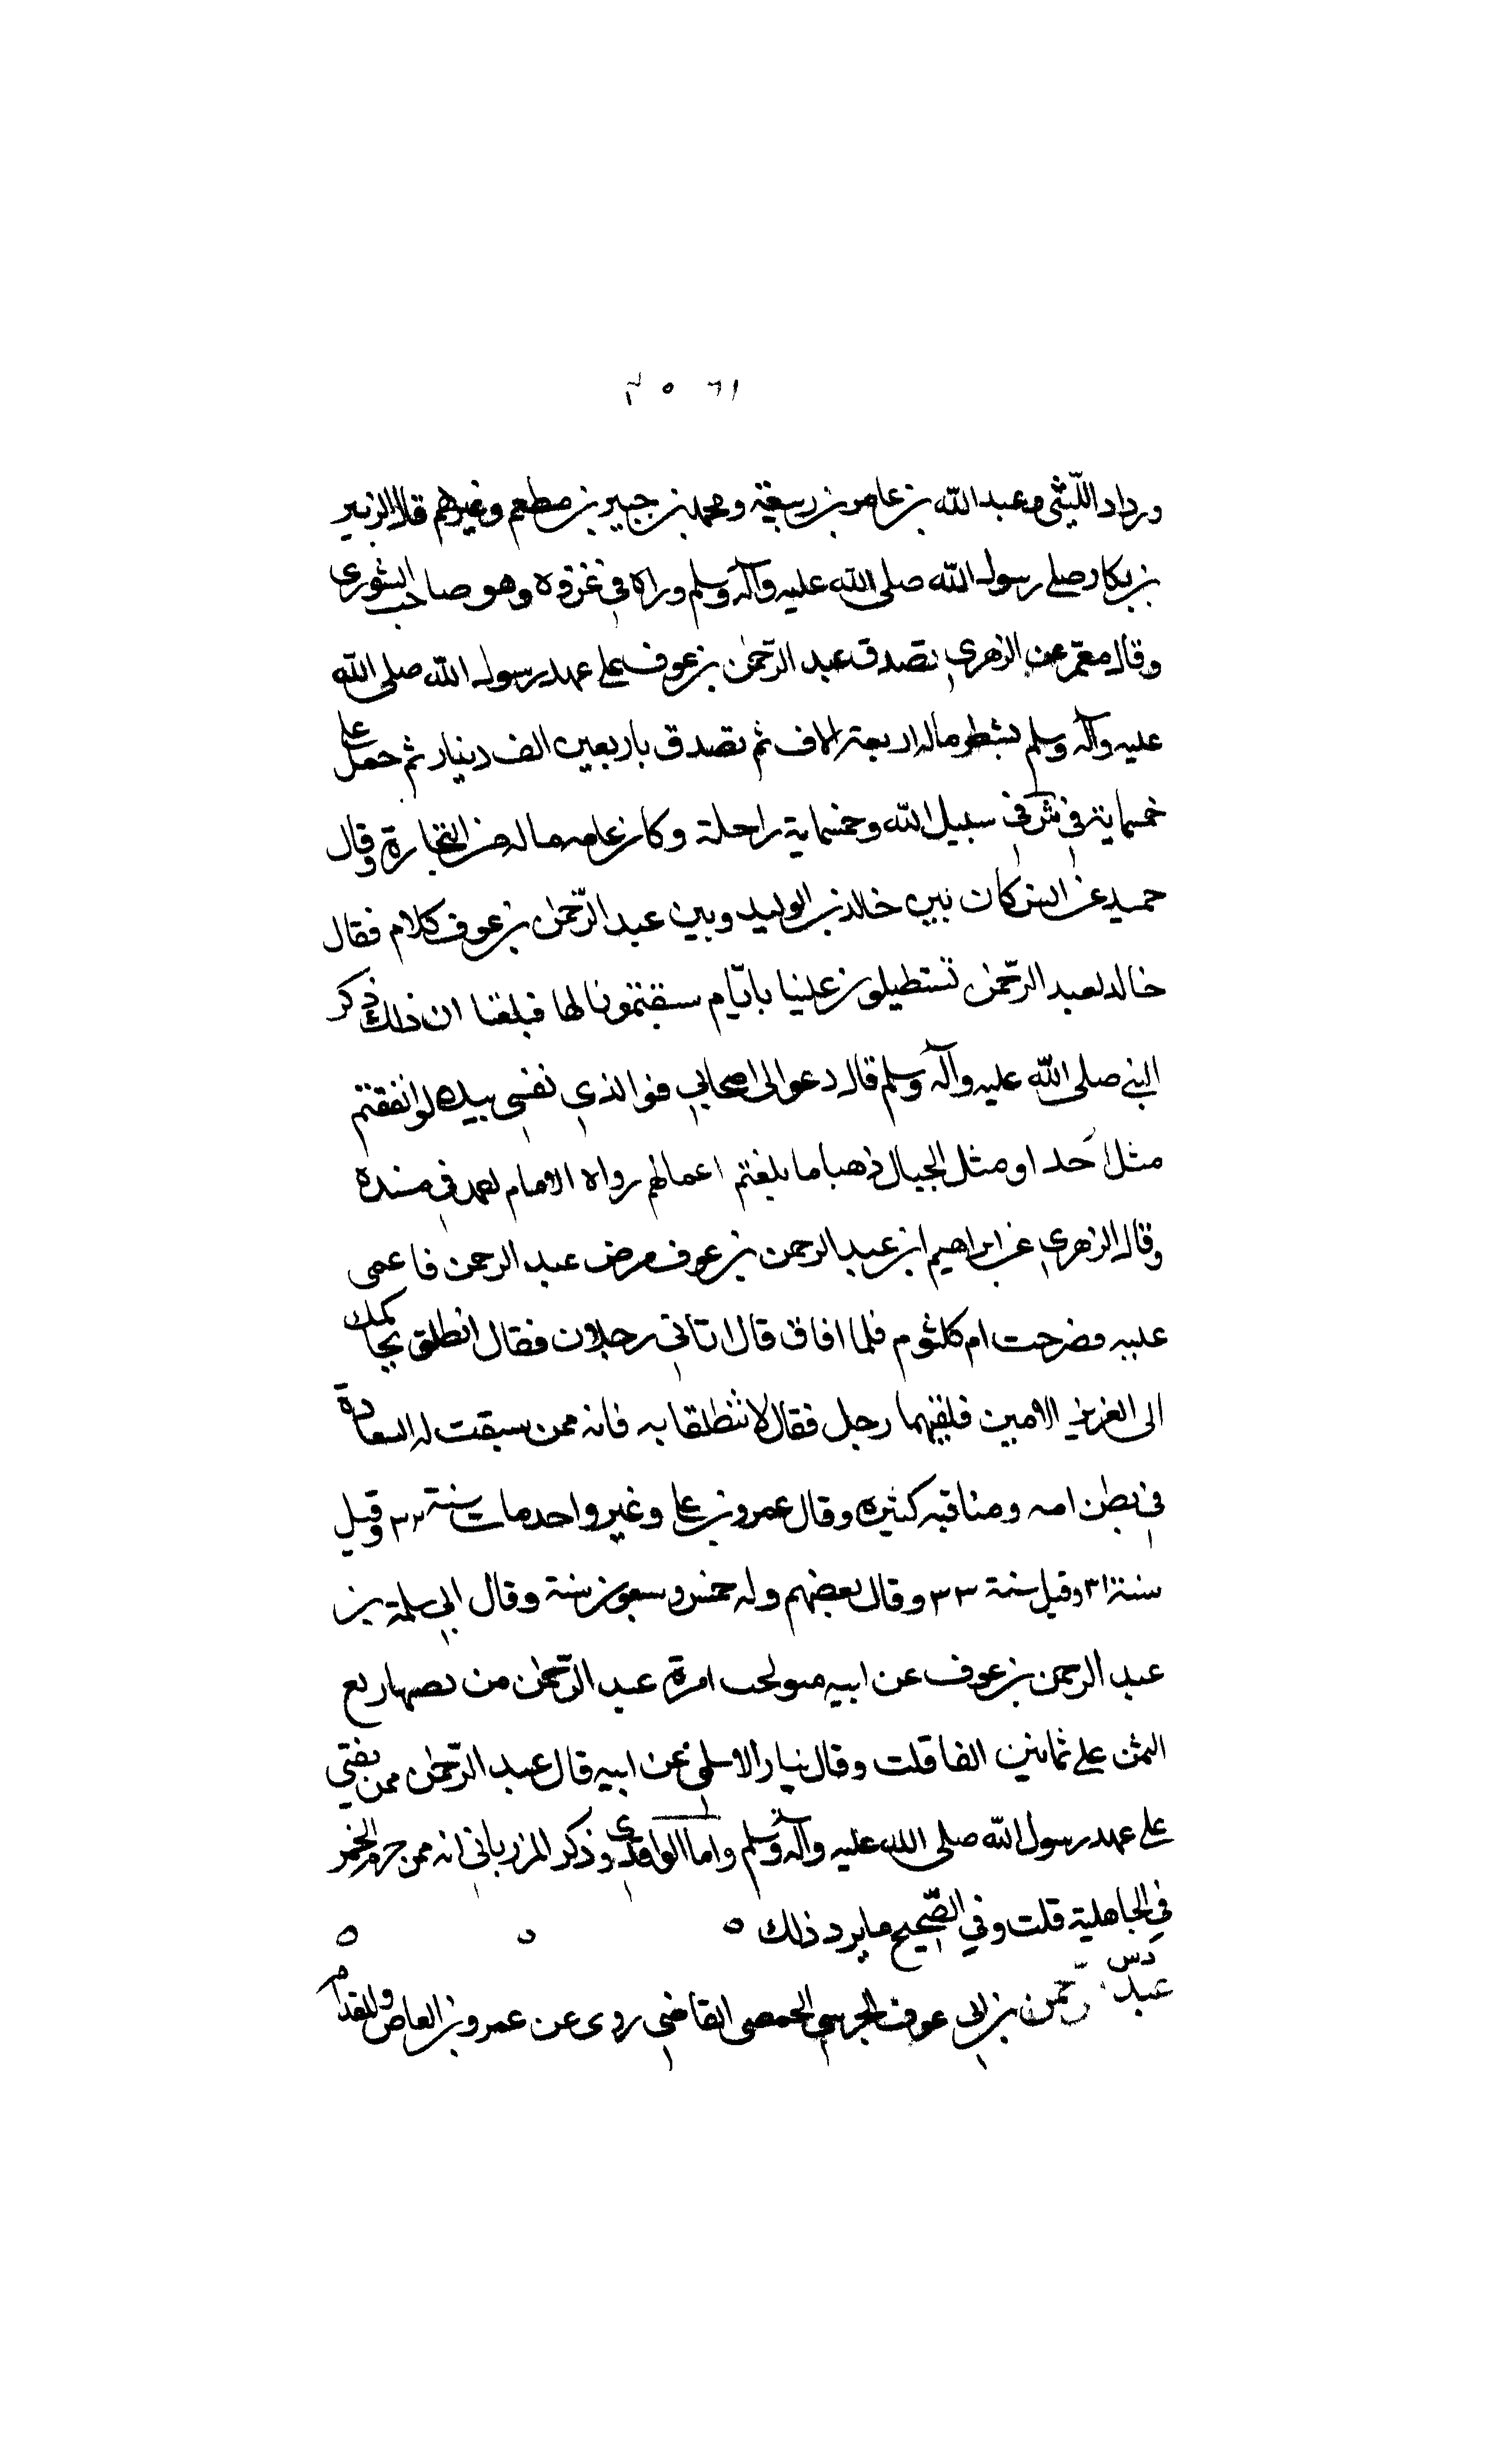 ورداد الليثى وعبد الله بن عامر بن ربيعة ومحمد بن جبير بن مطعم وغيرهم قال الزبير
بن بكار صلى رسول الله صلى الله عليه وآله وسلم وراه في غزوة وهو صاحب الشورى
وقال معمر عن الزهري تصدق عبد الرحمن بن عوف على عهد رسول الله صلى الله
عليه وآله وسلم بشطر ماله اربعة الاف ثم تصدق باربعين الف دينار ثم حمل على
خمسماية فرس في سبيل الله وخمسماية راحلة وكان عامه ماله من التجارة وقال
حميد عن انس كان بين خالد بن الوليد وبين عبد الرحمن بن عوف كلام فقال
خالد لعبد الرحمن تستطيلون علينا بايام سبقتمونا لها فبلغنا ان ذلك ذكر
النبي صلى الله عليه وآله وسلم قال دعوا لى اصحابي فوالذي نفسي بيده لو انفقتم
مثل احد او مثل الجبال ذهبا ما بلغتم اعمالهم رواه الامام احمد في مسنده
وقال الزهري عن ابراهيم ابن عبد الرحمن بن عوف مرض عبد الرحمن فاغمى
عليه فصرخت ام كلثوم فلما افاق قال اتاني رجلان فقال انطلق نحاكمك
الى العزيز الامين فلقيهما رجل فقال لا تنطلقا به فانه ممن سبقت له السعادة
في بطن امه ومناقبه كثيره وقال عمرو بن على وغير واحد مات سنة ٣٢ وقيل
سنة ٣١ وقيل سنة ٣٣ وقال بعضهم وله خمس وسبعون سنة وقال ابي سلمة بن
عبد الرحمن بن عوف عن ابيه صولحت امرة عبد الرحمن من نصيبها ربع
الثمن على ثمانين الفا قلت وقال نيار الاسلمى عن ابيه قال عبد الرحمن ممن يفتي
على عهد رسول الله صلى الله عليه وآله وسلم واما الواقدى وذكر المرزباني انه ممن حرم الخمر
في الجاهلية قلت وفي الصحيح ما يرد ذلك ه
دس
عبد الرحمن بن ابي عوف الجرشي الحمصى القاضي روى عن عمرو بن العاص والمقدام